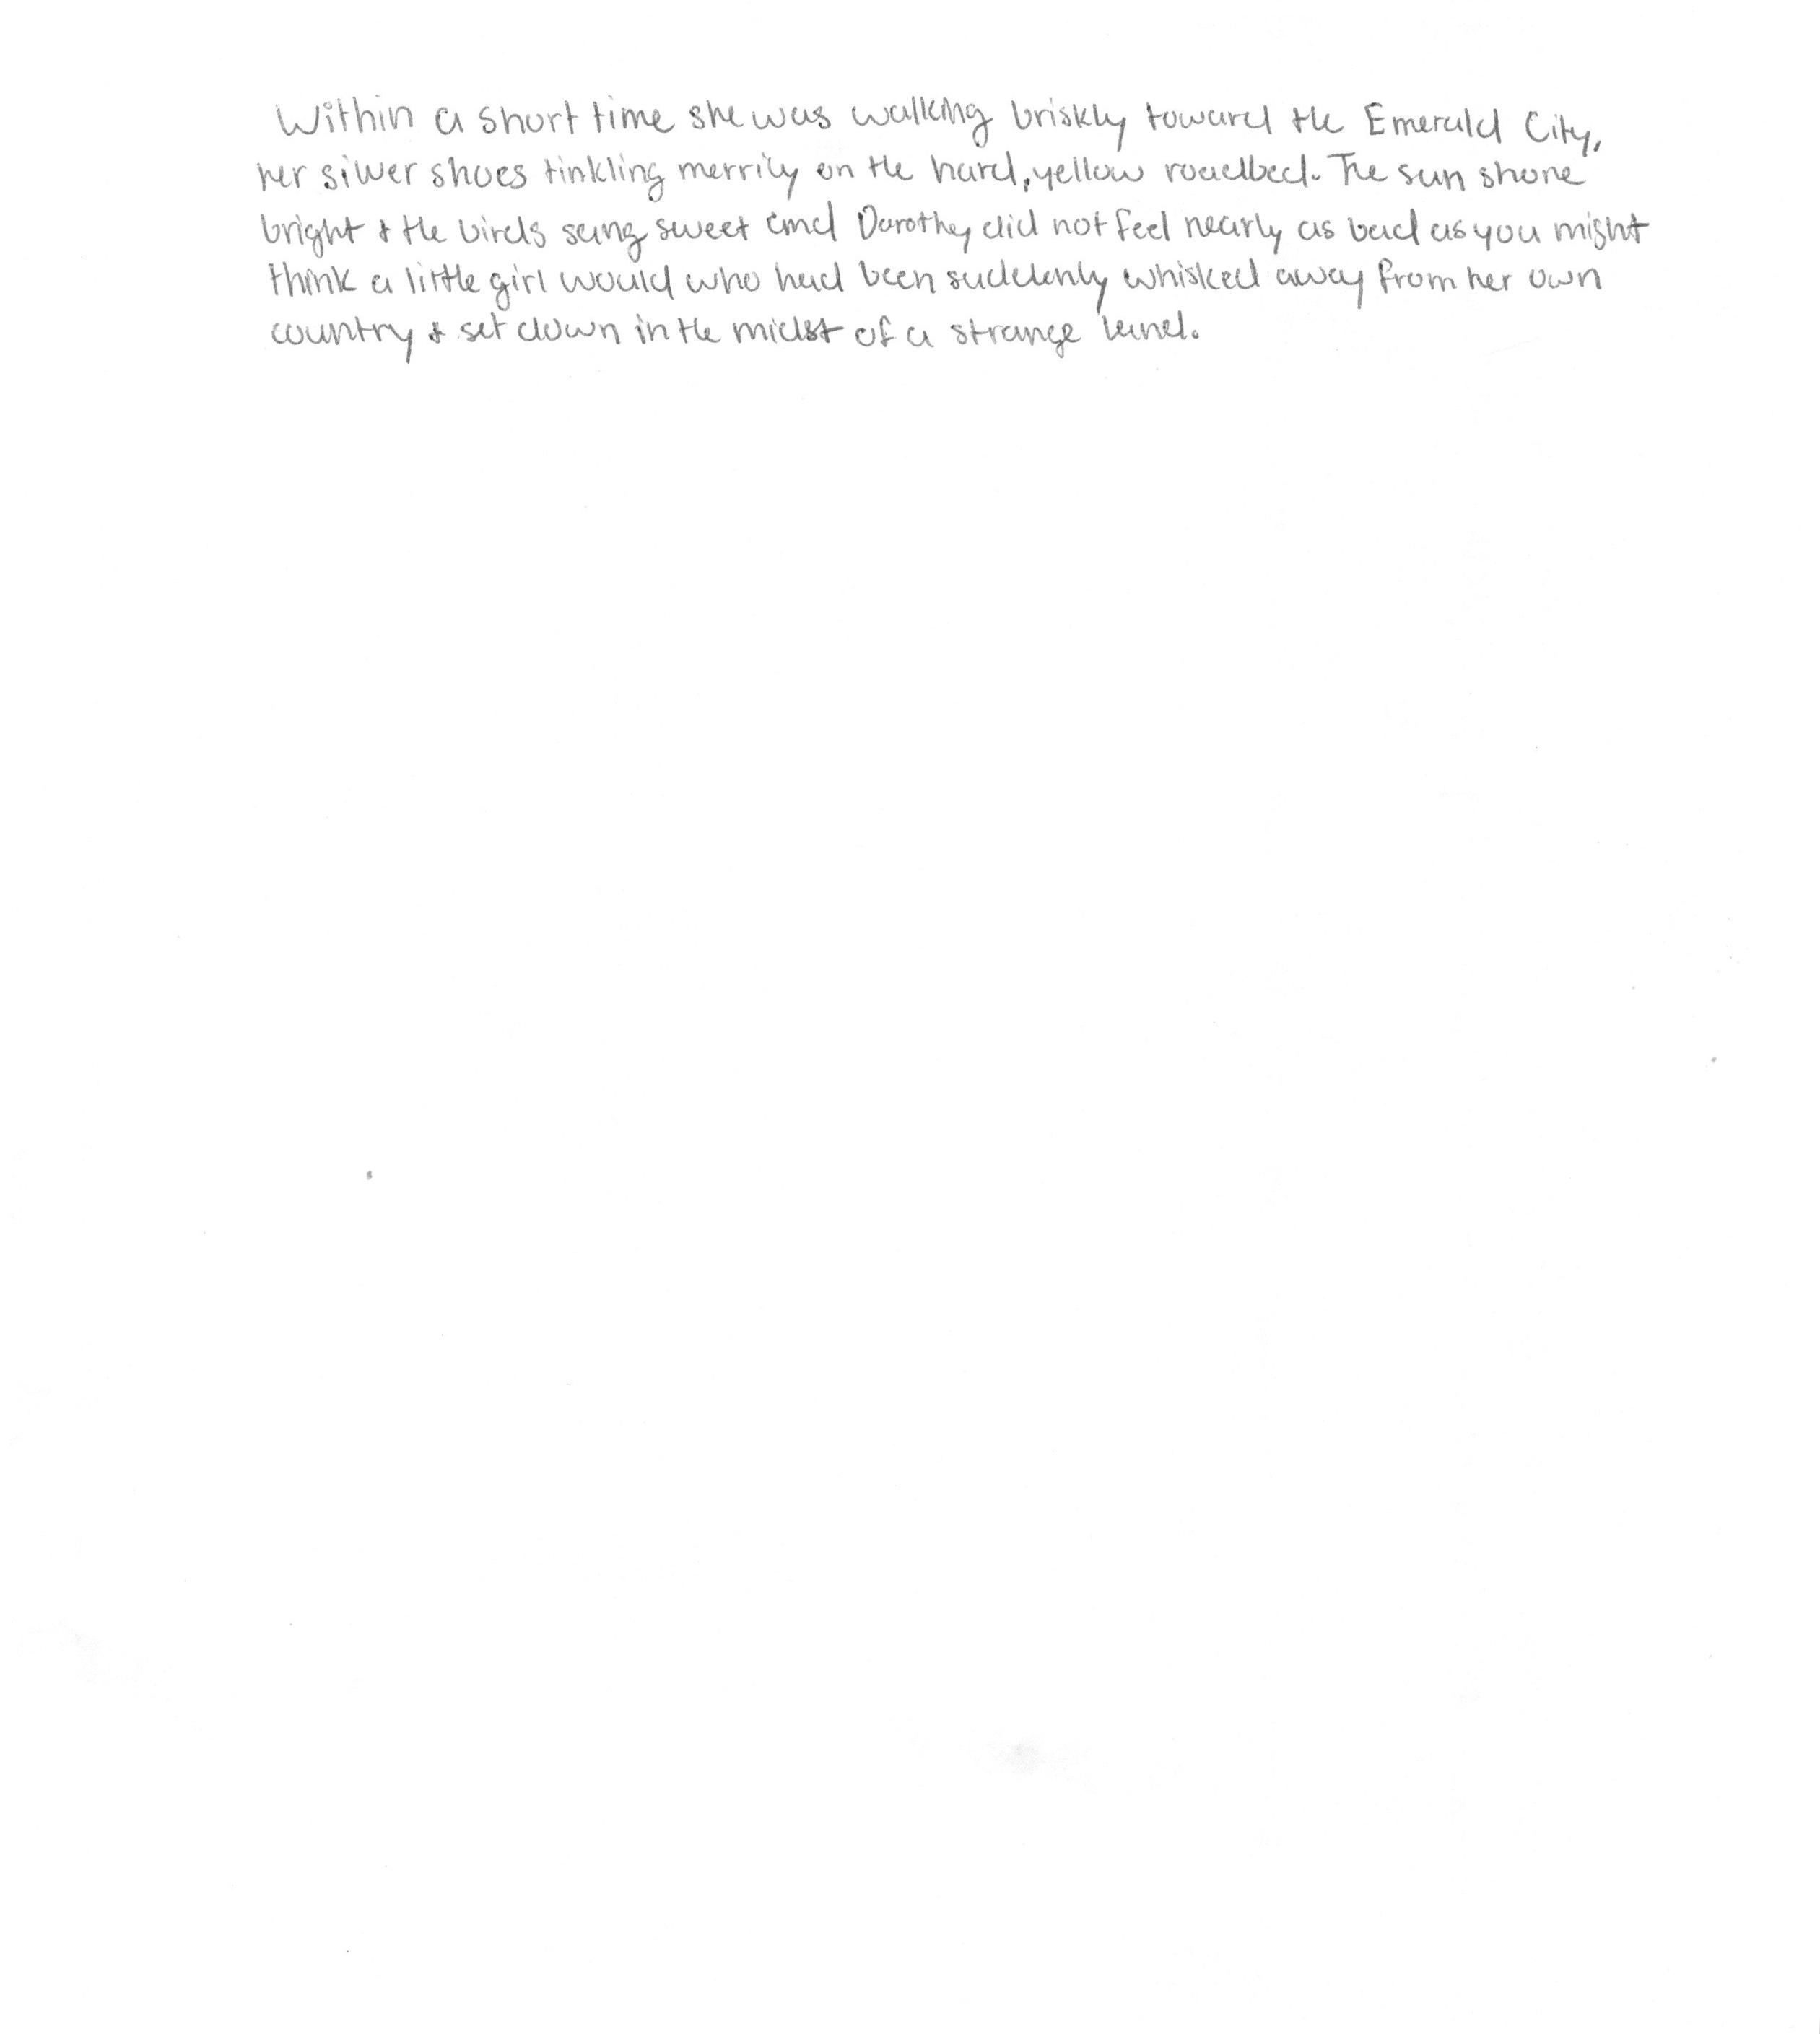 Within a short time she was walking briskly toward the Emerald City,
her silver shoes tinkling merrily on the hard, yellow roadbed. The sun shone
bright & the birds sang sweet and Dorothy did not feel nearly as bad as you might
think a little girl would who had been suddenly whisked away from her own
country & set down in the midst of a strange land.